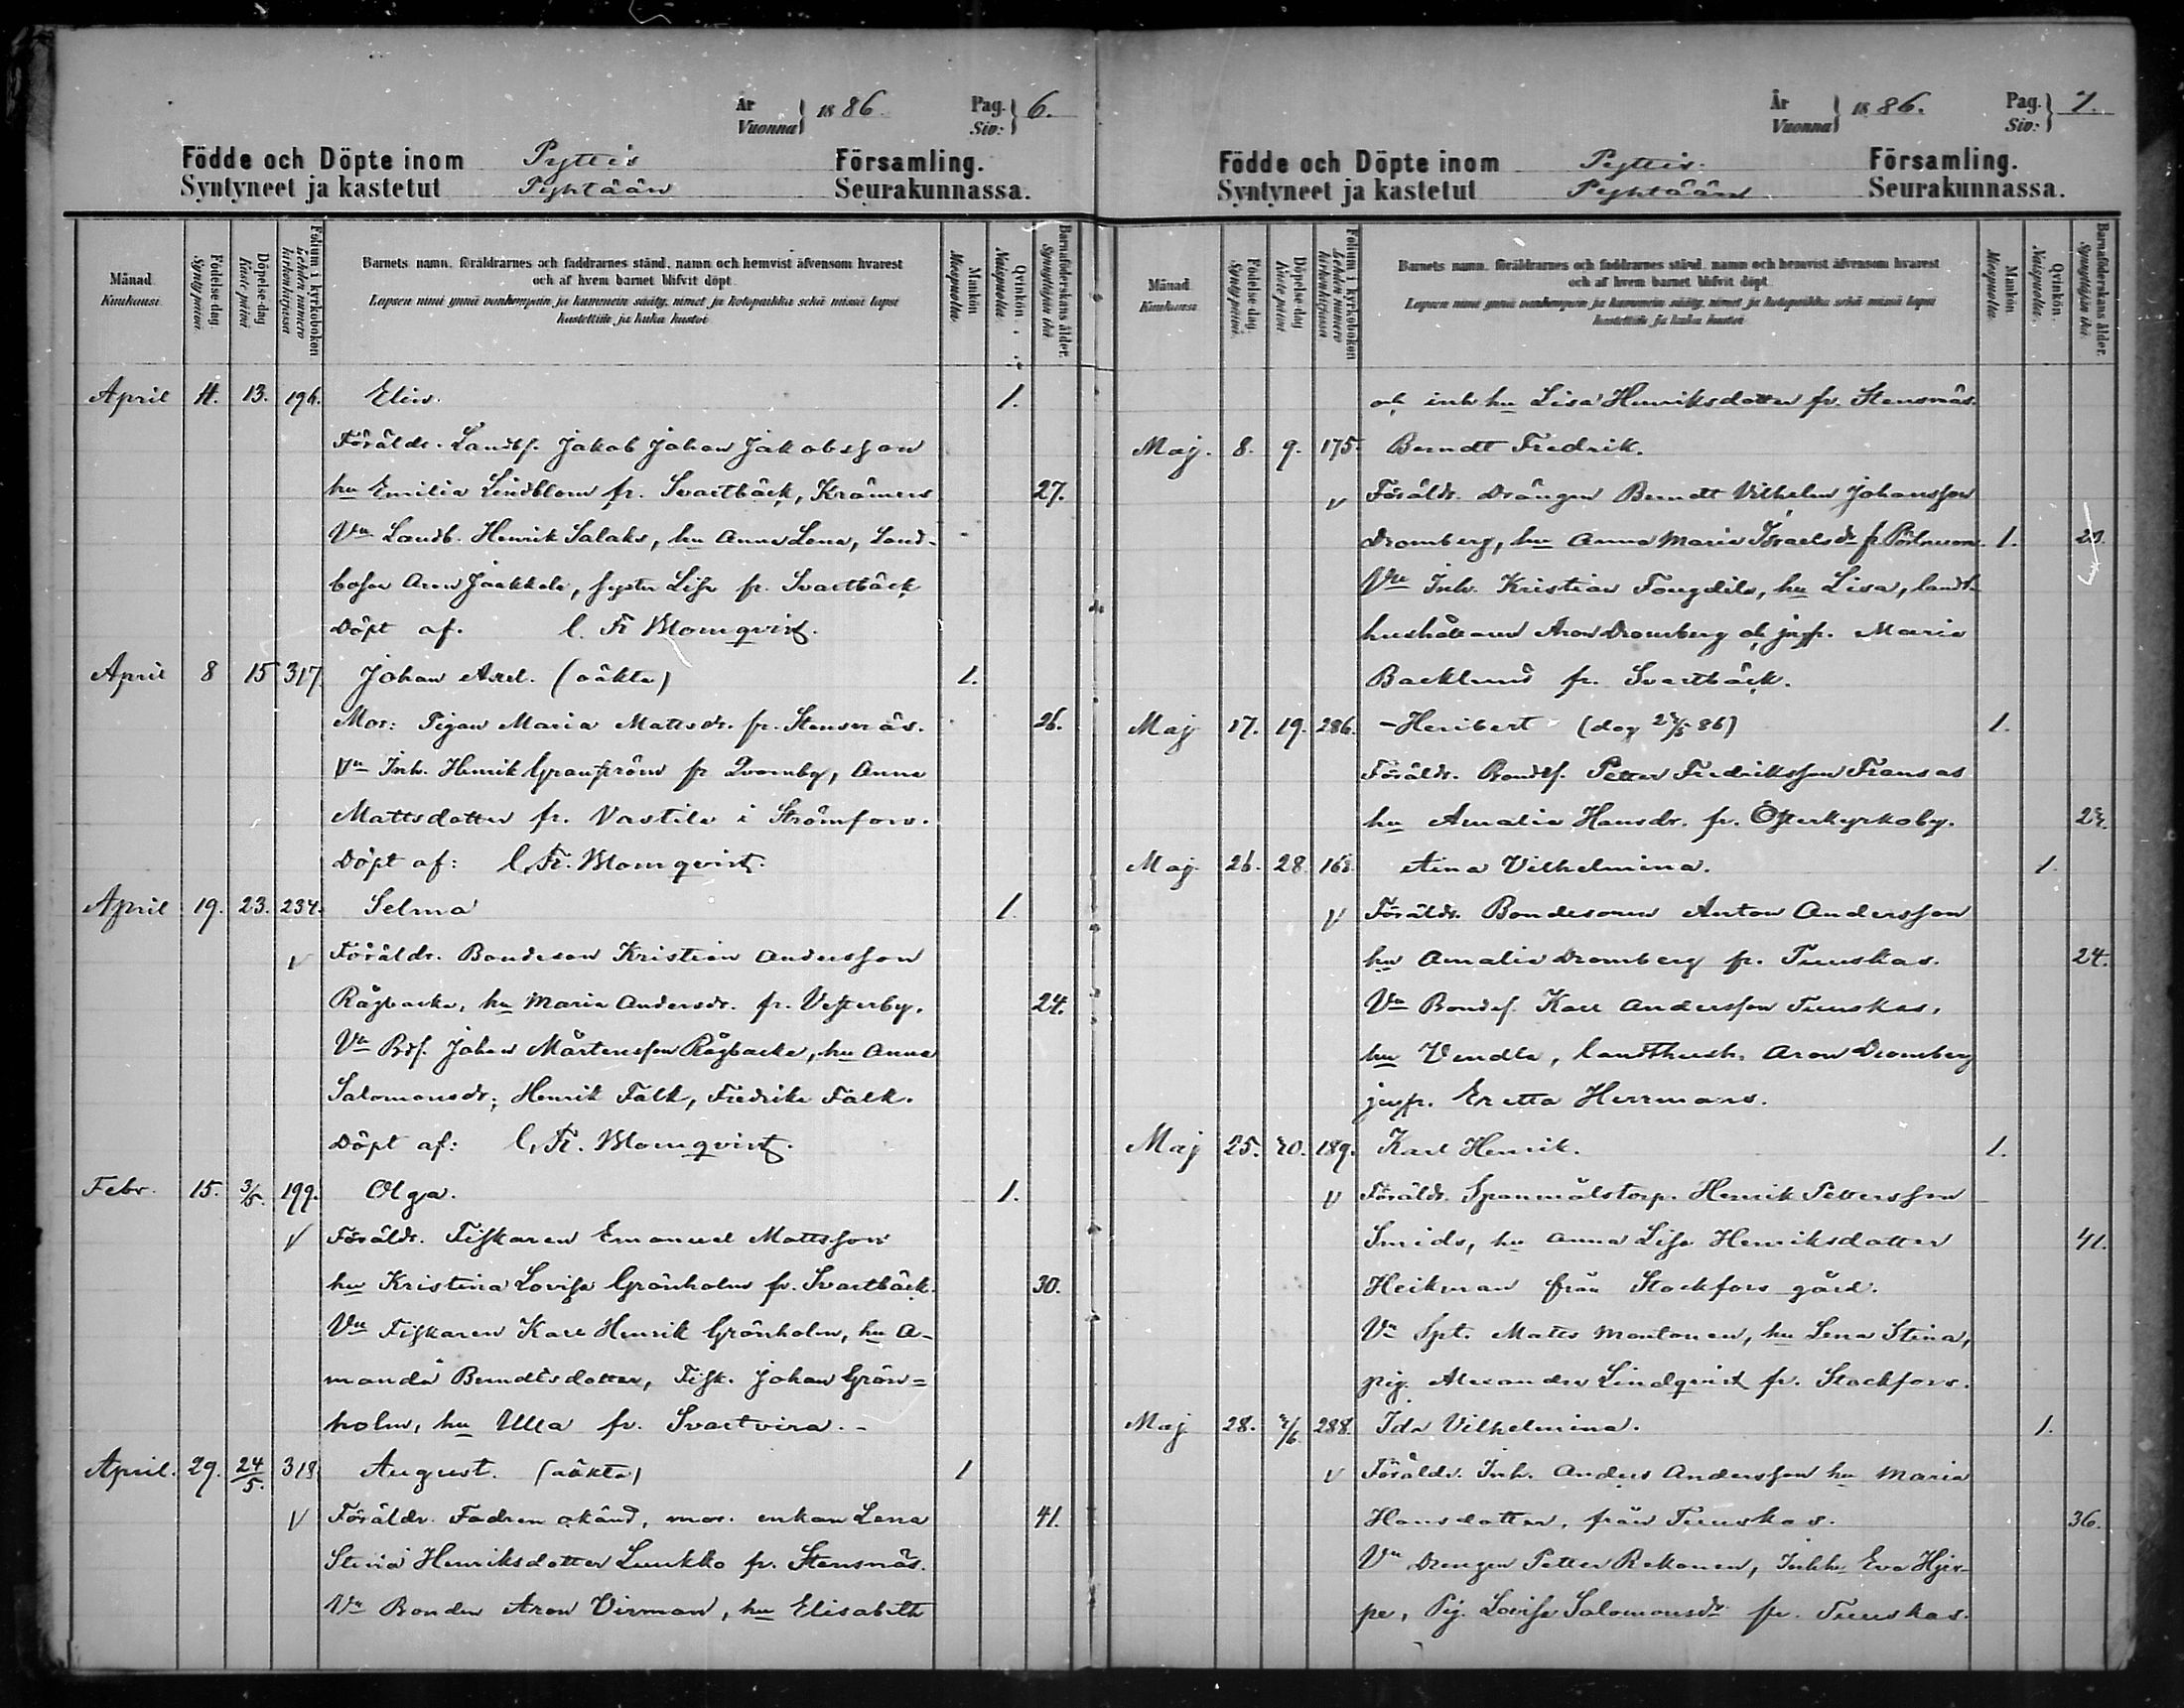 År Vuonna } 1886. Pag. Siv: } 6.
Födde och Döpte inom Pyttis Församling.
Syntyneet ja kastetut Pyhtään Seurakunnassa.
Månad Kuukausi. Födelse-dag Synty päivä Döpelse-dag Kaste päivä Folium i kyrkoboken Lehden numero kirkonkirjassa Barnets namn, föräldrarnes och faddrarnes stånd, namn och hemvist äfvensom hvarest och af hvem barnet blifvit döpt. Lapsen nimi ynnä vanhempain ja kummein sääty, nimet ja kotopaikka sekä missä lapsi kastettiin ja kuka kastoi Mankön Miespuolia. Qvinkön. Naispuolia. Barnaföderskans ålder. Synnyttäjän ikä
April 4. 13. 196. Elin. 1.
Föräldr. Landbf. Jakob Johan Jakobsson
hu Emilia Lindblom fr. Svartbäck, Krämers 27.
Vn Landb. Henrik Salaks, hu Anna Lena, Land-
bosen Aron Jaakkola, syster Lisa fr. Svartbäck
Döpt af. C. Fr Blomqvist.
April 8 15 317. Johan Axel. (oäkta) 1.
Mor: Pigan Maria Mattsdr. fr. Stensnäs. 26.
Vn Inh. Henrik Granström fr Qvarnby, Anna
Mattsdotter fr. Vastila i Strömfors.
Döpt af: C. Fr. Blomqvist.
April 19. 23. 234. Selma 1.
v Föräldr. Bondeson Kristian Andersson
Rågbacka, hu Maria Andersdr. fr. Vesterby. 24.
Vn Bdf. Johan Mårtensson Rågbacka, hu Anna
Salomonsdr, Henrik Falk, Fredrika Falk.
Döpt af: C. Fr. Blomqvist.
Febr. 15. 3/5. 199. Olga. 1.
v Föräldr. Fiskaren Emanuel Mattsson
hu Kristina Lovisa Grönholm fr. Svartbäck. 30.
Vn Fiskaren Karl Henrik Grönholm, hu A-
manda Berndtsdotter, Fisk. Johan Grön=
holm, hu Ulla fr. Svartvira.-
April. 29. 24/5. 318. August. (oäkta) 1
v Föräldr. Fadren okänd, mor. enkan Lena 41.
Stina Henriksdotter Luukko fr. Stensnäs.
Vn Bonden Aron Virman, hu Elisabeth
År Vuonna } 1886. Pag. Siv: } 7.
Födde och Döpte inom Pyttis. Församling.
Syntyneet ja kastetut Pyhtään Seurakunnassa.
Månad Kuukausi Födelse-dag Synty päivä Döpelse-dag Kaste päivä Folium i kyrkoboken Lehden numero kirkonkirjassa Barnets namn, föräldrarnes och faddrarnes stånd, namn och hemvist äfvensom hvarest och af hvem barnet blifvit döpt. Lapsen nimi ynnä vanhempain ja kummein sääty, nimet ja kotopaikka sekä missä lapsi kastettiin ja kuka kastoi Mankön Miespuolia. Qvinkön. Naispuolia. Barnaföderskans ålder. Synnyttäjän ikä
och inh. hu Lisa Henriksdotter fr. Stensnäs.
Maj. 8. 9. 175. Berndt Fredrik.
v Föräldr. Drängen Berndt Vilhelm Johansson
Dromberg, hu Anna Maria Israelsdr fr 1.
Vn Inh. Kristian Fougdila, hu Lisa, landt-
hushållaren Aron Dromberg och jngfr. Maria
Backlund fr. Svartbäck.
Maj 17. 19. 286. -Heribert (dog /5 86) 1.
Föräldr. Bondef. Petter Fredriksson Fransas
hu Amalia Hansdr. fr. Österkyrkoby.
Maj 26. 28. 168. Aina Vilhelmina. 1.
v Föräldr. Bondesonen Anton Andersson
hu Amalia Dromberg fr. Tuuskas. 24.
Vn Bondef. Karl Andersson Tuuskas,
hu Vendla, landthush. Aron Dromberg
jngfr. Eretta Herrmans.
Maj 25. 30. 189. Karl Henrik. 1.
v Föräldr. Spanmålstorp. Henrik Pettersson
Smids, hu Anna Lisa Henriksdotter 41.
Heikman från Stockfors gård.
Vn Spt. Matts Montonen, hu Lena Stina,
pig. Alexandra Lindqvist fr. Stockfors.
Maj 28. /6 288. Ida Vilhelmina. 1.
v Föräldr. Inh. Anders Andersson hu Maria
Hansdotter, från Tuuskas. 36.
Vn Drengen Petter Rekonen, Inhh. Eva Hjer-
pe, Pig. Lovisa Salomonsdr fr. Tuuskas.